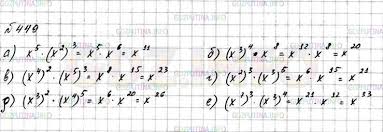 №449
а) x⁵ · (x²)³ = x⁵ · x⁶ = x¹¹
б) (x³)⁴ · x⁸ = x¹² · x⁸ = x²⁰
в) (x⁴)² · (x⁵)³ = x⁸ · x¹⁵ = x²³
г) (x²)³ · (x³)⁵ = x⁶ · x¹⁵ = x²¹
д) (x³)² · (x⁴)⁵ = x⁶ · x²⁰ = x²⁶
е) (x⁷)³ · (x³)⁴ = x²¹ · x¹² = x³³